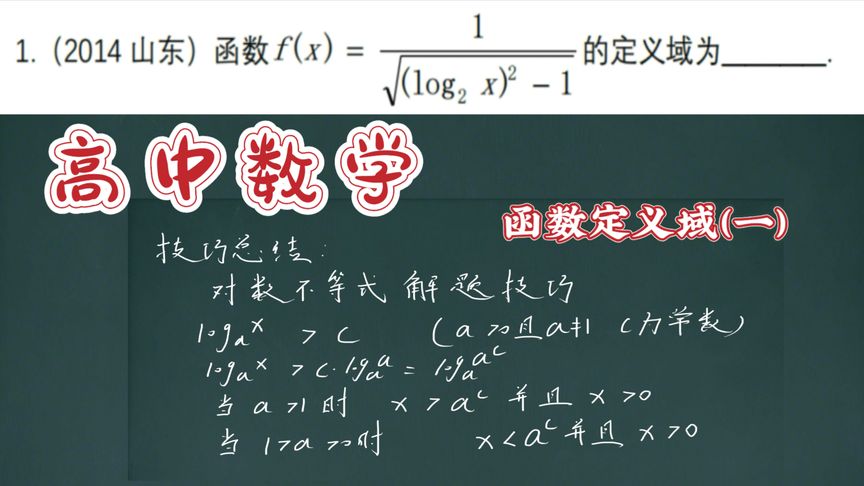 1.（2014 山东）函数 f(x) = 1/√((log₂ x)² − 1) 的定义域为________.
高中数学
函数定义域(一)
技巧总结：
对数不等式解题技巧
logₐx > c （a>0且a≠1 c为常数）
logₐx > c·logₐa = logₐa^c
当 a>1时 x > a^c 并且 x>0
当 1>a>0时 x < a^c 并且 x>0